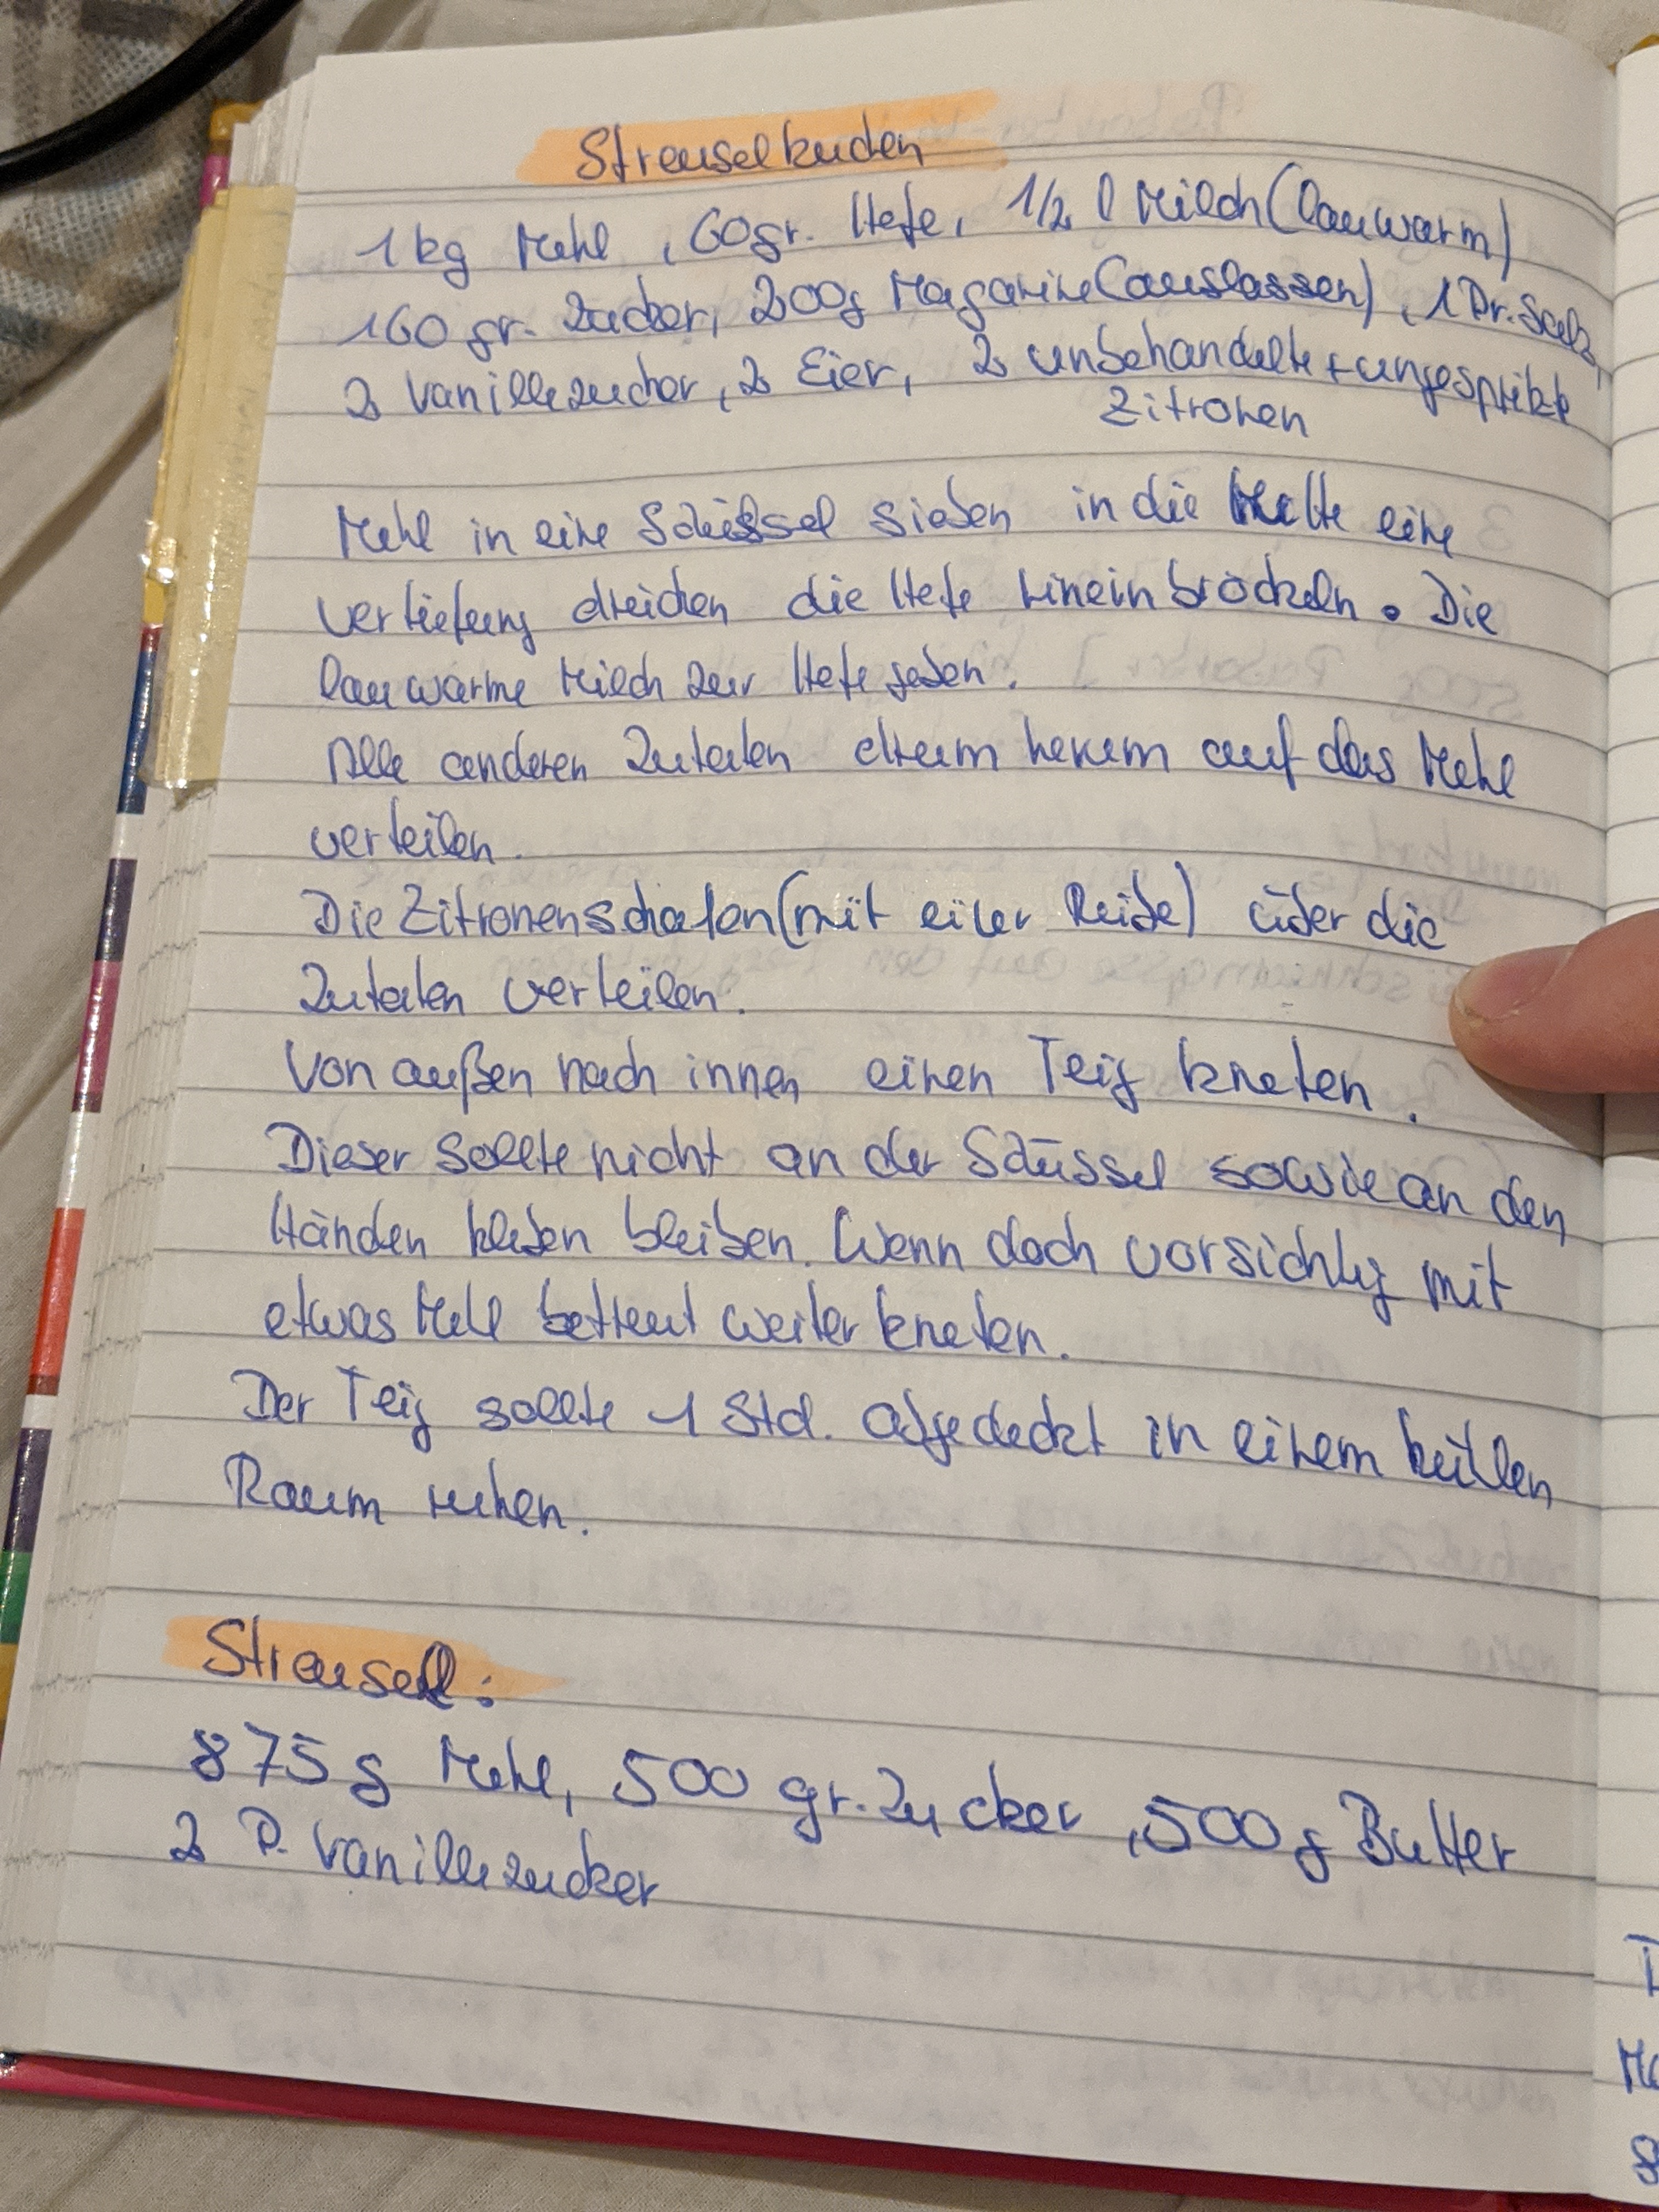 Streuselkuchen
1 kg Mehl, 60gr. Hefe, 1/2 l Milch (lauwarm)
160 gr. Zucker, 200g Magarine (auslassen), 1 Pr. Salz,
2 Vanillezucker, 2 Eier, 2 unbehandelte + ungespritzte
Zitronen
Mehl in eine Schüssel sieben in die Mitte eine
Vertiefung drücken die Hefe hineinbröckeln. Die
lauwarme Milch zur Hefe geben.
Alle anderen Zutaten drum herum auf das Mehl
verteilen.
Die Zitronenschalen (mit einer Reibe) über die
Zutaten verteilen.
Von außen nach innen einen Teig kneten.
Dieser sollte nicht an der Schüssel sowie an den
Händen kleben bleiben. Wenn doch vorsichtig mit
etwas Mehl bestreut weiter kneten.
Der Teig sollte 1 Std. abgedeckt in einem kühlen
Raum ruhen.
Streusel:
875g Mehl, 500 gr. Zucker, 500g Butter
2 P. Vanillezucker